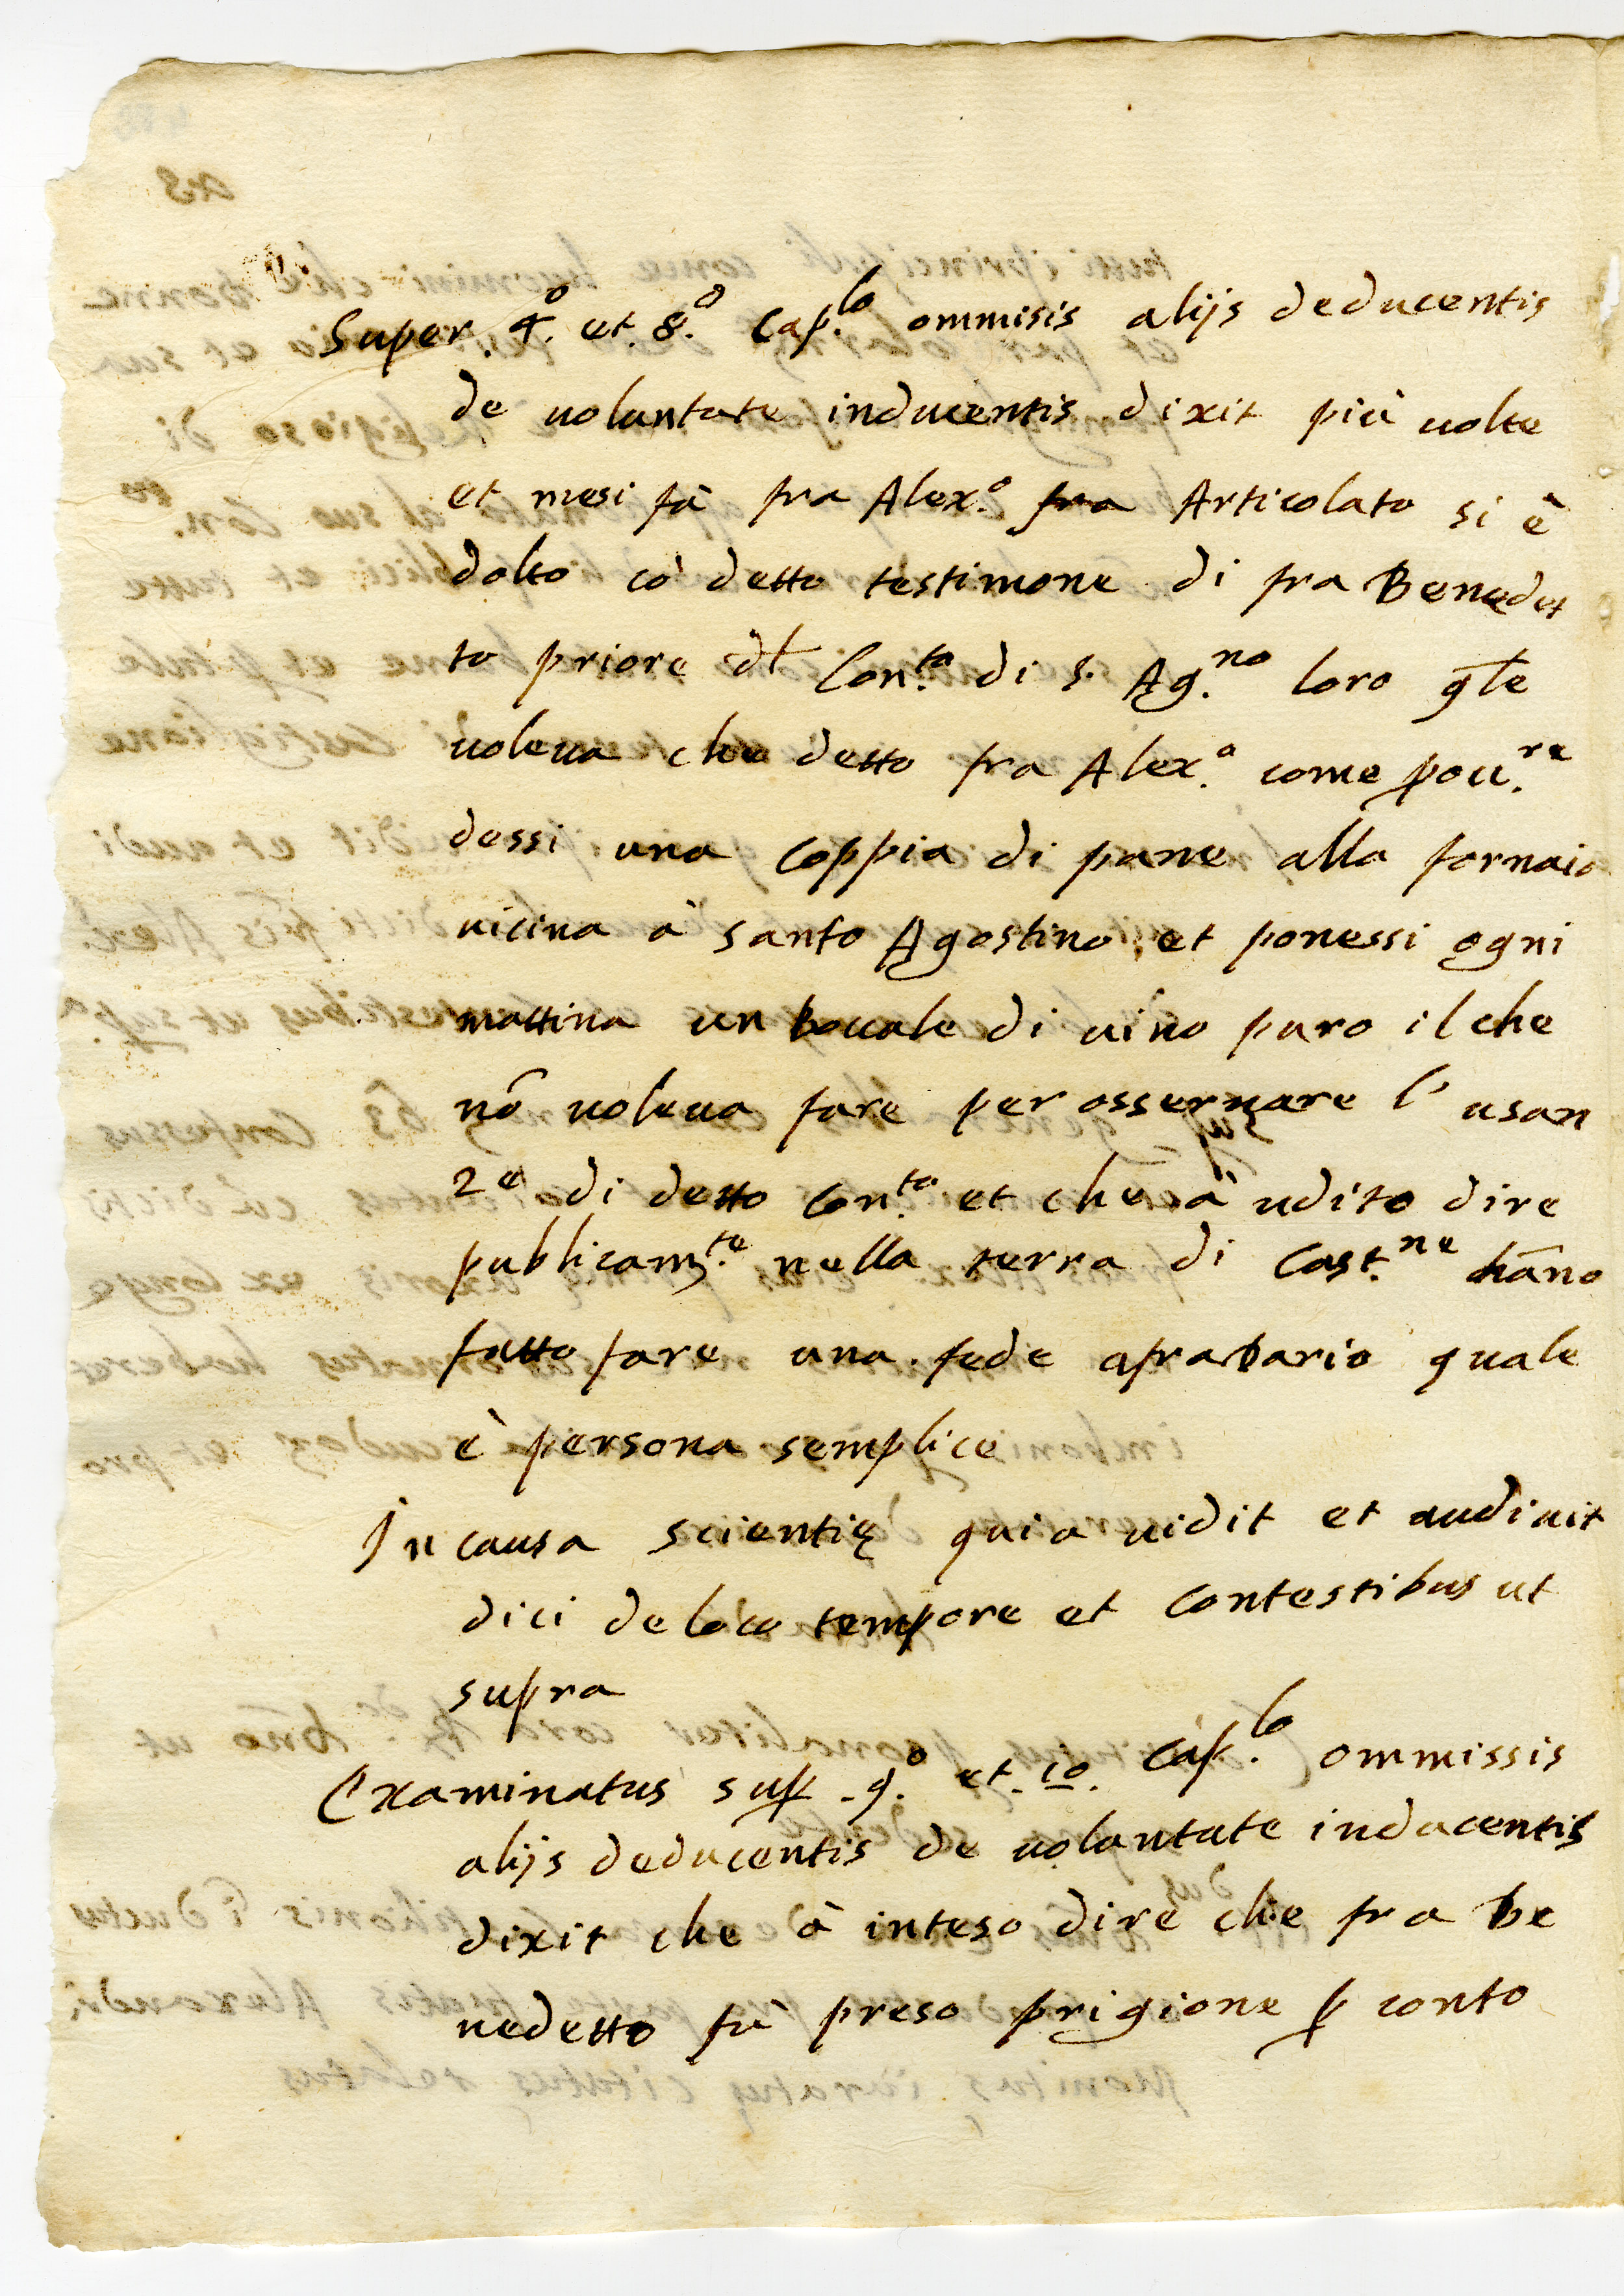 Super. 4.º et. 8.º Cap.lo ommisis alijs deducentis
de uoluntate inducentis dixit più uolte
et mesi fà fra Alex.º fra Articolato si è
dolto cō detto testimone di fra Benedet
to priore dl Con.to di S. Ag.no loro qle
uoleua che detto fra Alex.º come pou.re
dessi una coppia di pane alla fornaia
uicina à santo Agostino et ponessi ogni
mattina un boccale di uino puro il che
nō uoleua fare per osseruare l' usan
ze di detto Con.to et che à udito dire
publicam.te nella terra di Cast.ne hāno
fatto fare una fede afradario quale
è persona semplice
In causa scientię quia uidit et audiuit
dici de loco tempore et contestibus ut
supra
Examinatus sup 9.º et. 10. Cap.lo ommissis
alijs deducentis de uoluntate inducentis
dixit che à inteso dire che fra be
nedetto fù preso prigione p conto